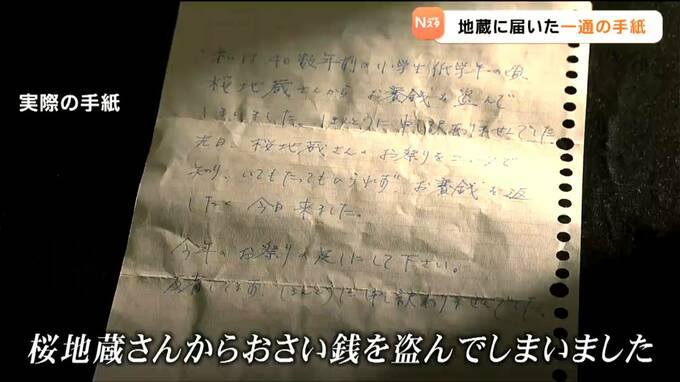 Nスタ
地蔵に届いた一通の手紙
実際の手紙
私は 数年前の小学生低学年の頃、
桜地蔵さんから お賽銭を盗んで
しまいました。ほんとうに申し訳ありませんでした。
先日、桜地蔵さんのお祭りをニュースで
知り、いてもたってもいられず、お賽銭を返
したく 今日来ました。
今年のお祭りの足しにして下さい。
ほんとうに申し訳ありませんでした。
桜地蔵さんからおさい銭を盗んでしまいました